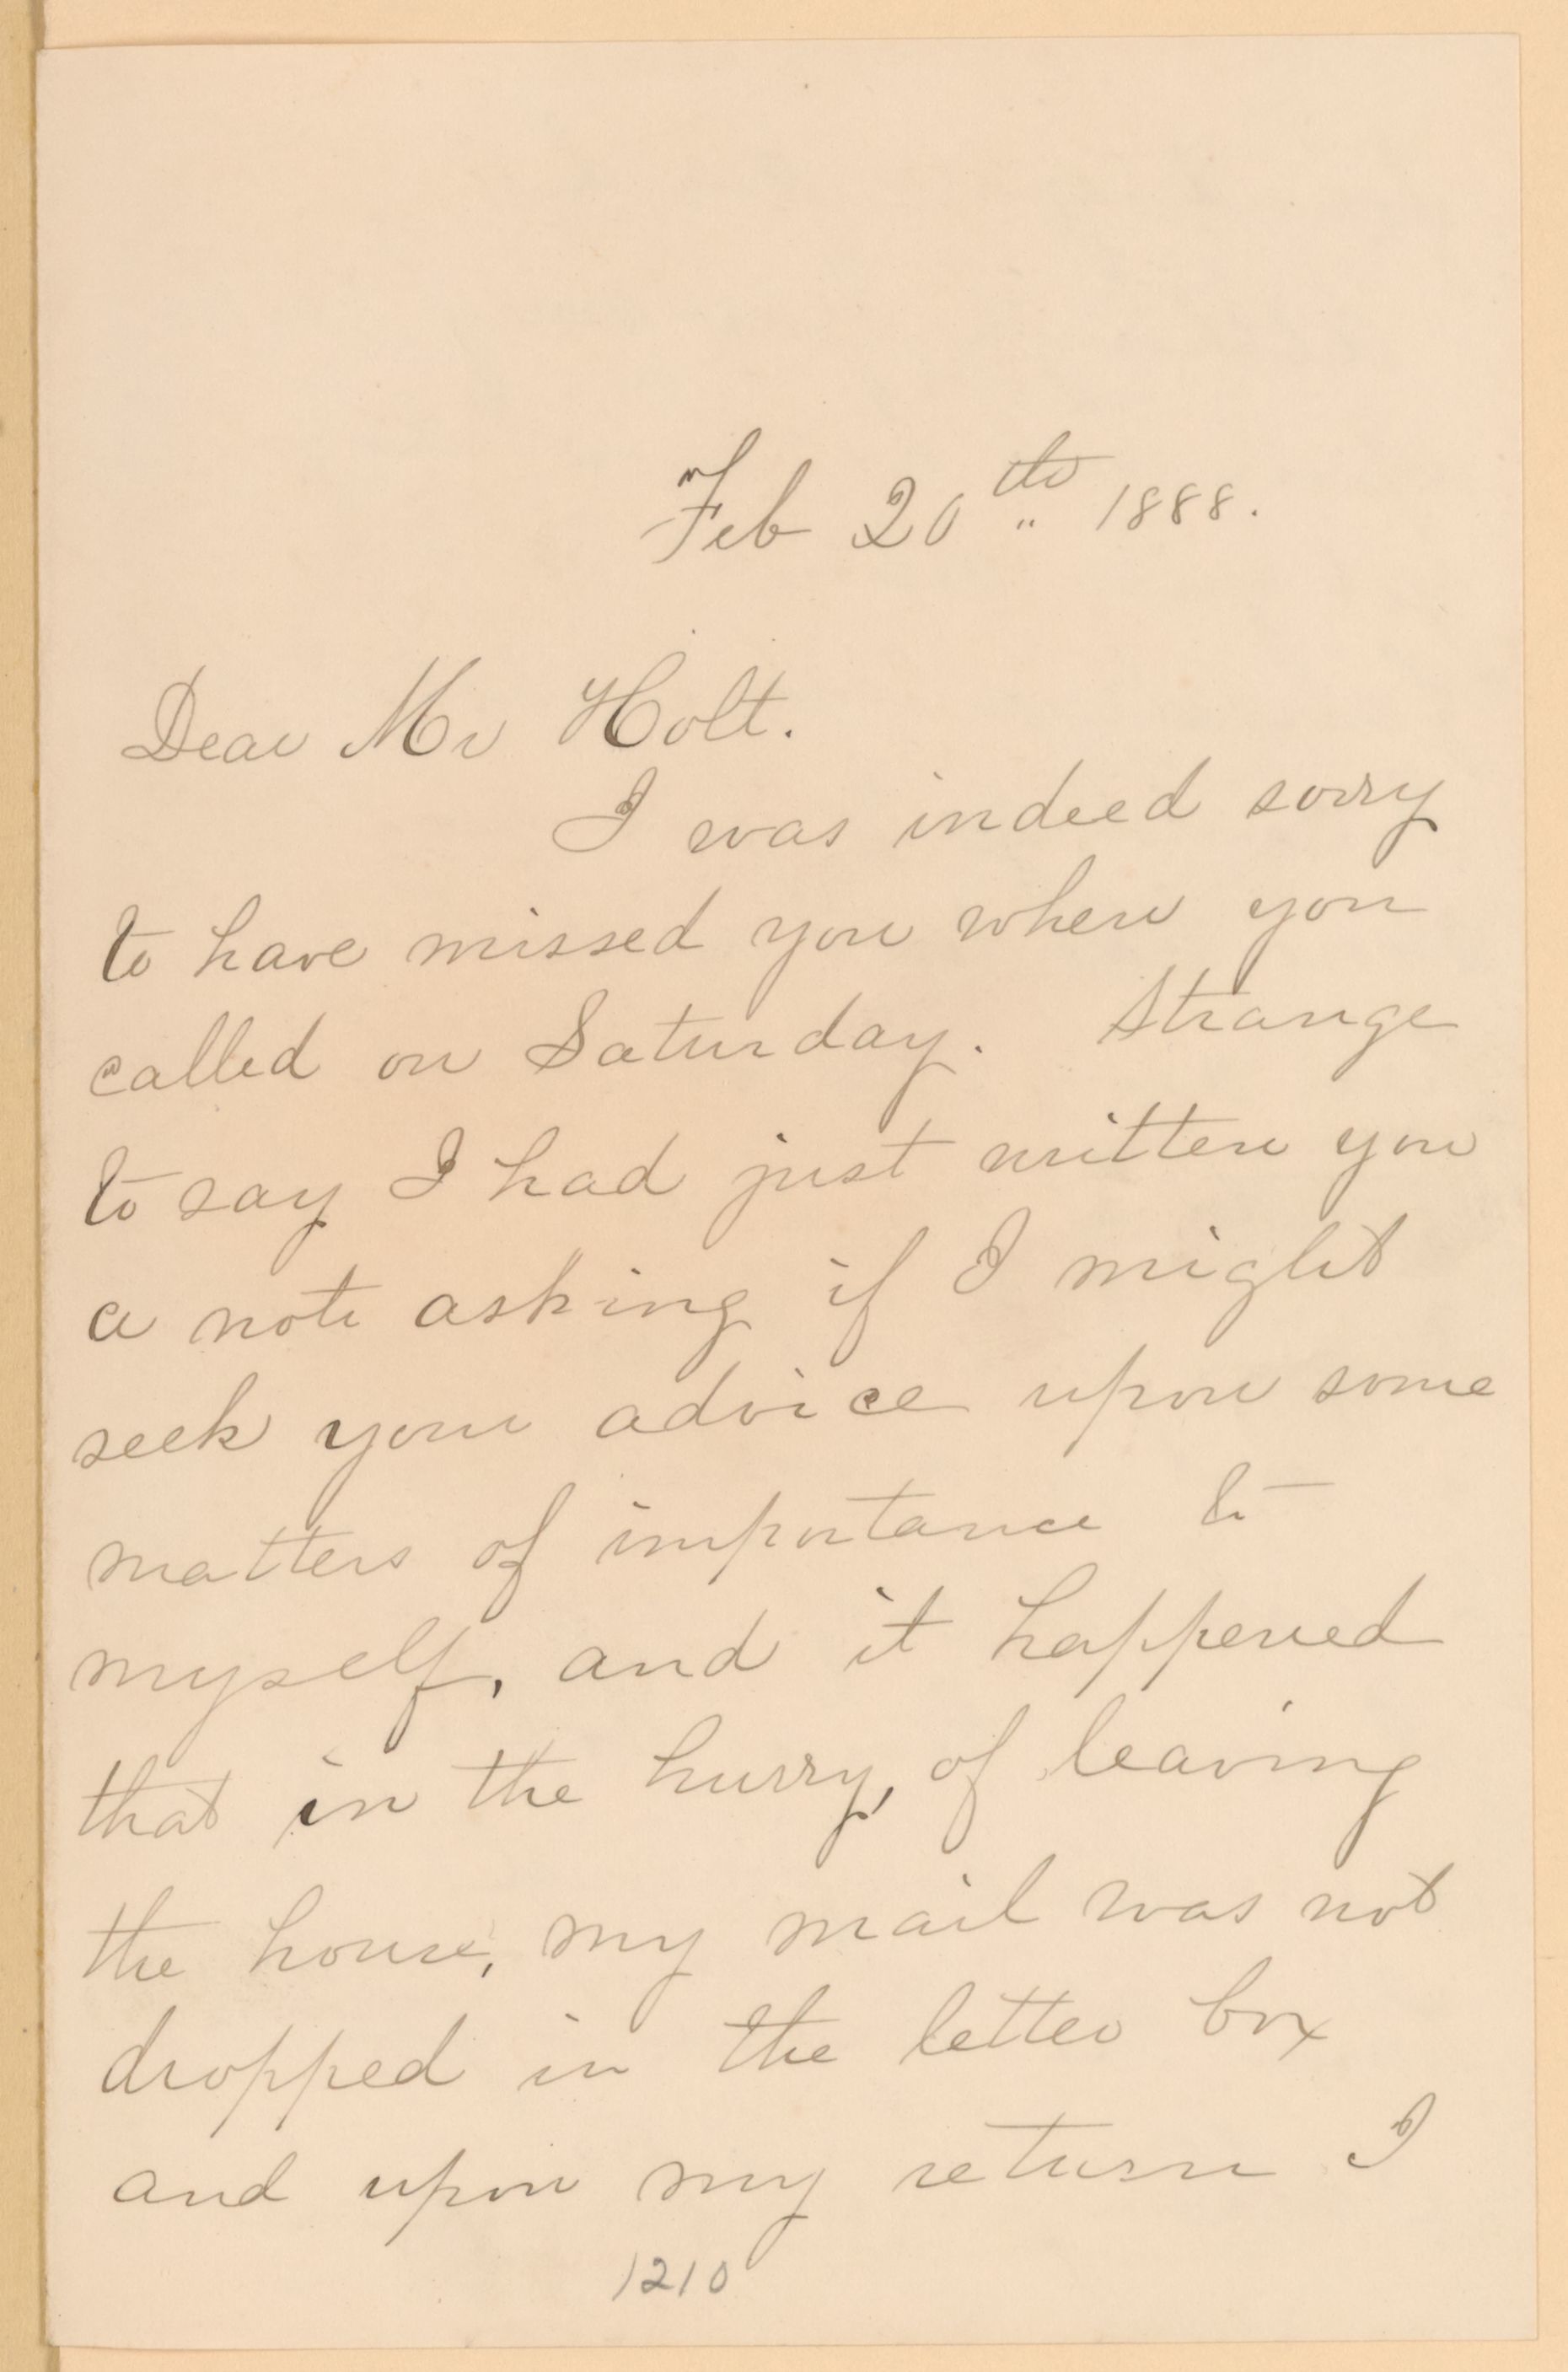 Feb 20th 1888.
Dear Mr Holt.
I was indeed sorry
to have missed you when you
called on Saturday. Strange
to say I had just written you
a note asking if I might
seek your advice upon some
matters of importance to
myself, and it happened
that in the hurry, of leaving
the house, my mail was not
dropped in the letter box
and upon my return I
1210